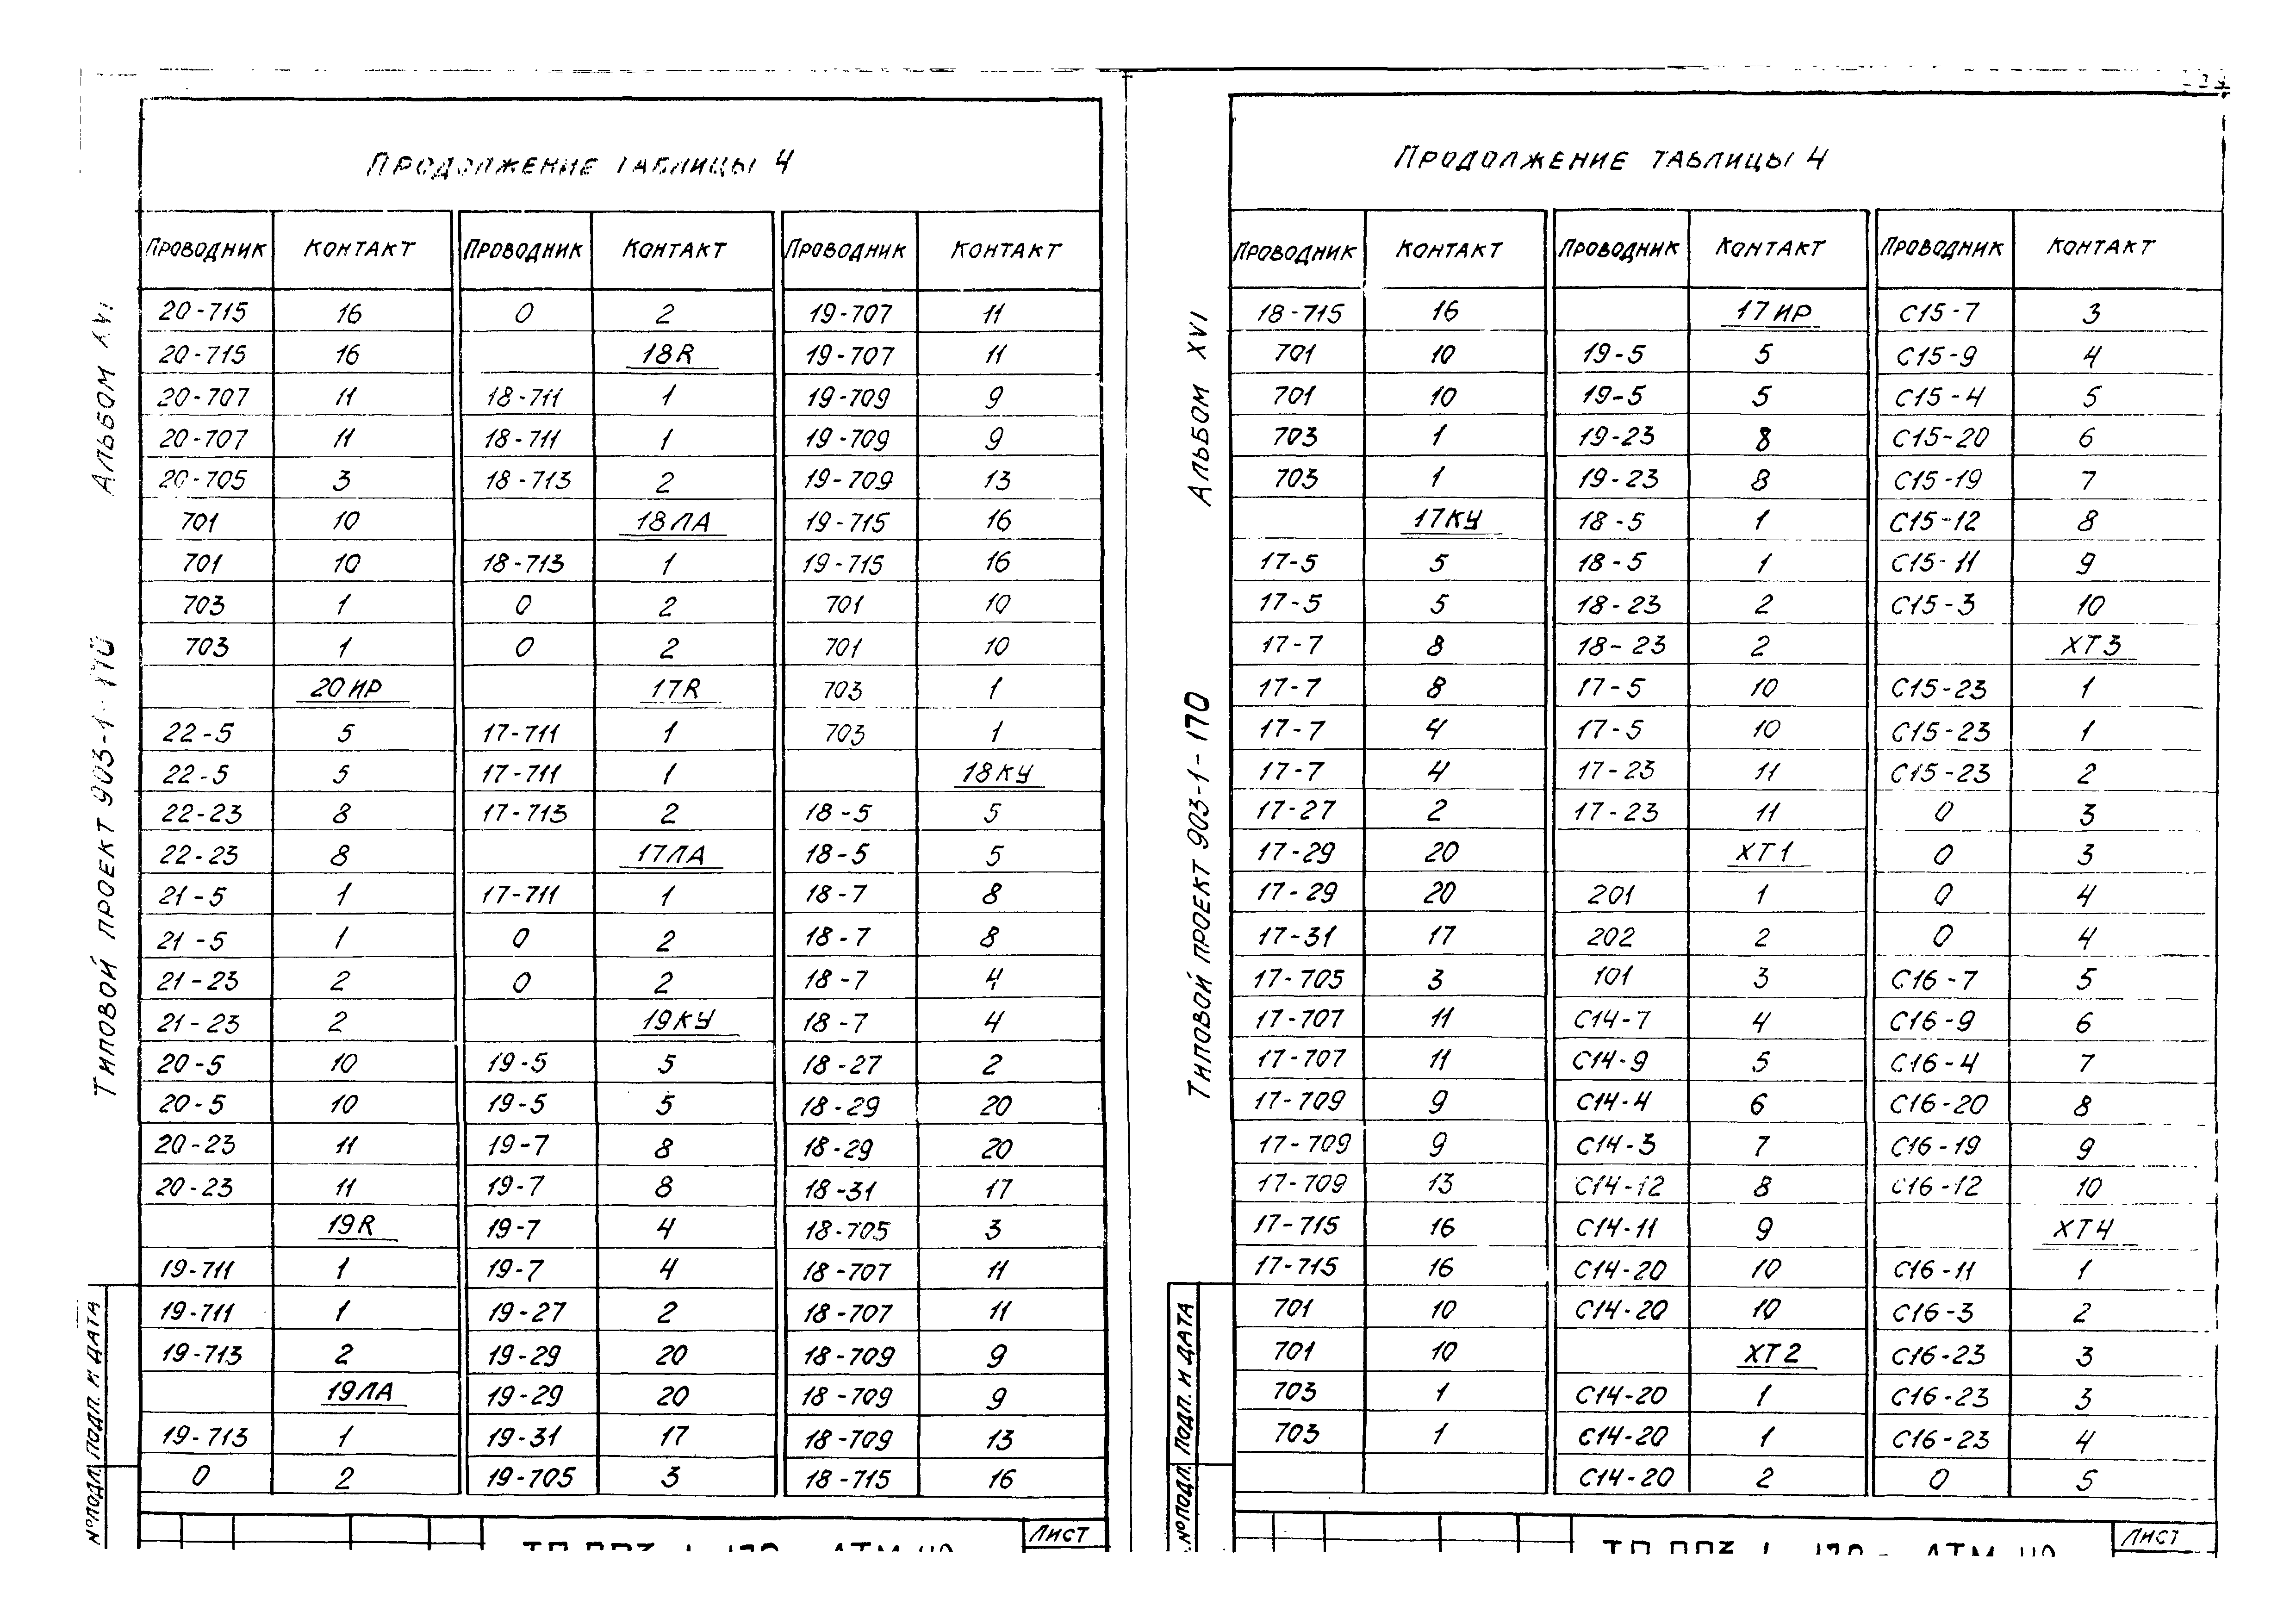 Продолжение таблицы 4
Проводник Контакт Проводник Контакт Проводник Контакт
20-715 16 0 2 19-707 11
20-715 16 18R 19-707 11
20-707 11 18-711 1 19-709 9
20-707 11 18-711 1 19-709 9
20-705 3 18-713 2 19-709 13
701 10 18ЛА 19-715 16
701 10 18-713 1 19-715 16
703 1 0 2 701 10
703 1 0 2 701 10
20ИР 17R 703 1
22-5 5 17-711 1 703 1
22-5 5 17-711 1 18КУ
22-23 8 17-713 2 18-5 5
22-23 8 17ЛА 18-5 5
21-5 1 17-711 1 18-7 8
21-5 1 0 2 18-7 8
21-23 2 0 2 18-7 4
21-23 2 19КУ 18-7 4
20-5 10 19-5 5 18-27 2
20-5 10 19-5 5 18-29 20
20-23 11 19-7 8 18-29 20
20-23 11 19-7 8 18-31 17
19R 19-7 4 18-705 3
19-711 1 19-7 4 18-707 11
19-711 1 19-27 2 18-707 11
19-713 2 19-29 20 18-709 9
19ЛА 19-29 20 18-709 9
19-713 1 19-31 17 18-709 13
0 2 19-705 3 18-715 16
Лист
Альбом XVI
Типовой проект 903-1-170
Подп. и дата
№ подл.
Продолжение таблицы 4
Проводник Контакт Проводник Контакт Проводник Контакт
18-715 16 17ИР С15-7 3
701 10 19-5 5 С15-9 4
701 10 19-5 5 С15-4 5
703 1 19-23 8 С15-20 6
703 1 19-23 8 С15-19 7
17КУ 18-5 1 С15-12 8
17-5 5 18-5 1 С15-11 9
17-5 5 18-23 2 С15-3 10
17-7 8 18-23 2 ХТ3
17-7 8 17-5 10 С15-23 1
17-7 4 17-5 10 С15-23 1
17-7 4 17-23 11 С15-23 2
17-27 2 17-23 11 0 3
17-29 20 ХТ1 0 3
17-29 20 201 1 0 4
17-31 17 202 2 0 4
17-705 3 101 3 С16-7 5
17-707 11 С14-7 4 С16-9 6
17-707 11 С14-9 5 С16-4 7
17-709 9 С14-4 6 С16-20 8
17-709 9 С14-3 7 С16-19 9
17-709 13 С14-12 8 С16-12 10
17-715 16 С14-11 9 ХТ4
17-715 16 С14-20 10 С16-11 1
701 10 С14-20 10 С16-3 2
701 10 ХТ2 С16-23 3
703 1 С14-20 1 С16-23 3
703 1 С14-20 1 С16-23 4
С14-20 2 0 5
Лист
Альбом XVI
Типовой проект 903-1-170
Подп. и дата
№ подл.